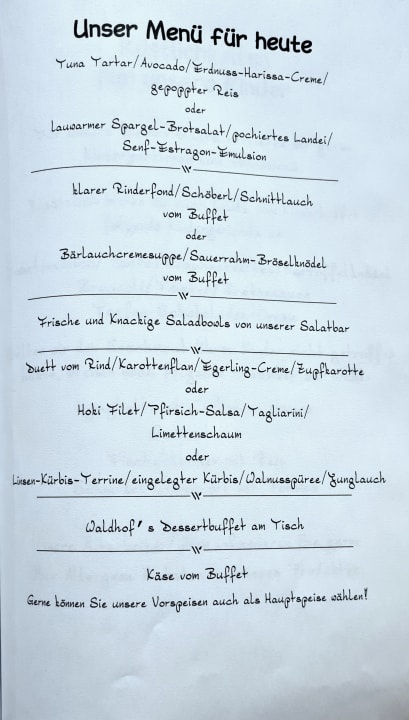 Unser Menü für heute
Tuna Tartar/Avocado/Erdnuss-Harissa-Creme/
gepoppter Reis
oder
Lauwarmer Spargel-Brotsalat/pochiertes Landei/
Senf-Estragon-Emulsion
klarer Rinderfond/Schöberl/Schnittlauch
vom Buffet
oder
Bärlauchcremesuppe/Sauerrahm-Bröselknödel
vom Buffet
Frische und Knackige Saladbowls von unserer Salatbar
Duett vom Rind/Karottenflan/Egerling-Creme/Zupfkarotte
oder
Hoki Filet/Pfirsich-Salsa/Tagliarini/
Limettenschaum
oder
Linsen-Kürbis-Terrine/eingelegter Kürbis/Walnusspüree/Junglauch
Waldhof's Dessertbuffet am Tisch
Käse vom Buffet
Gerne können Sie unsere Vorspeisen auch als Hauptspeise wählen!